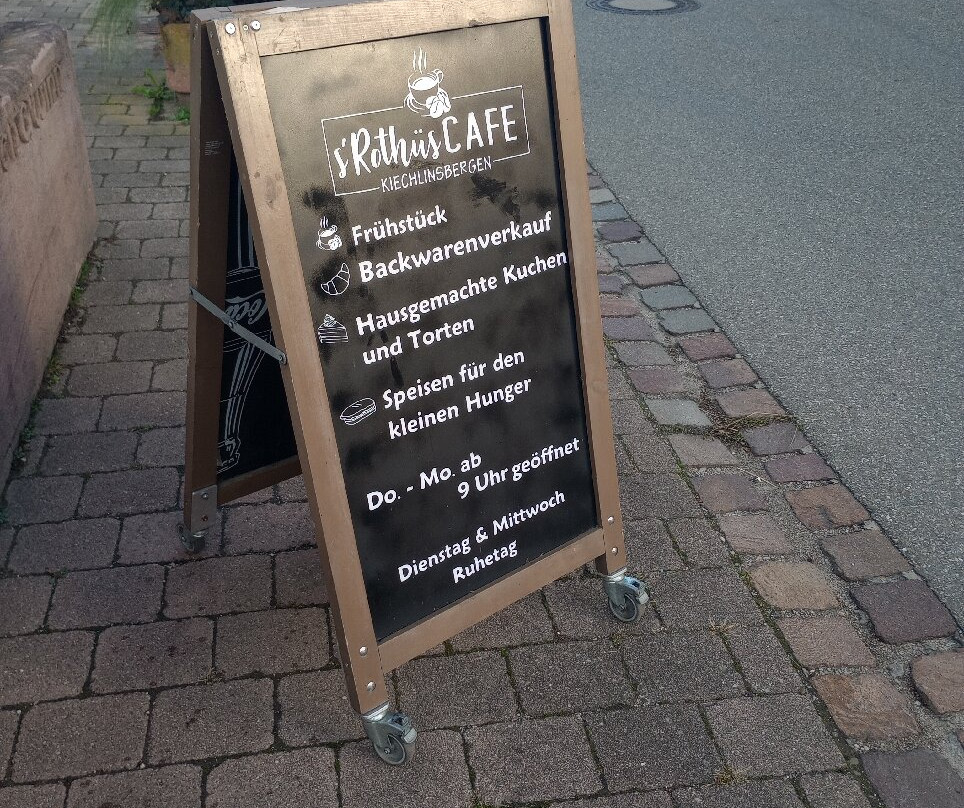 s'Rothüs CAFE
KIECHLINSBERGEN
Frühstück
Backwarenverkauf
Hausgemachte Kuchen
und Torten
Speisen für den
kleinen Hunger
Do. - Mo. ab
9 Uhr geöffnet
Dienstag & Mittwoch
Ruhetag